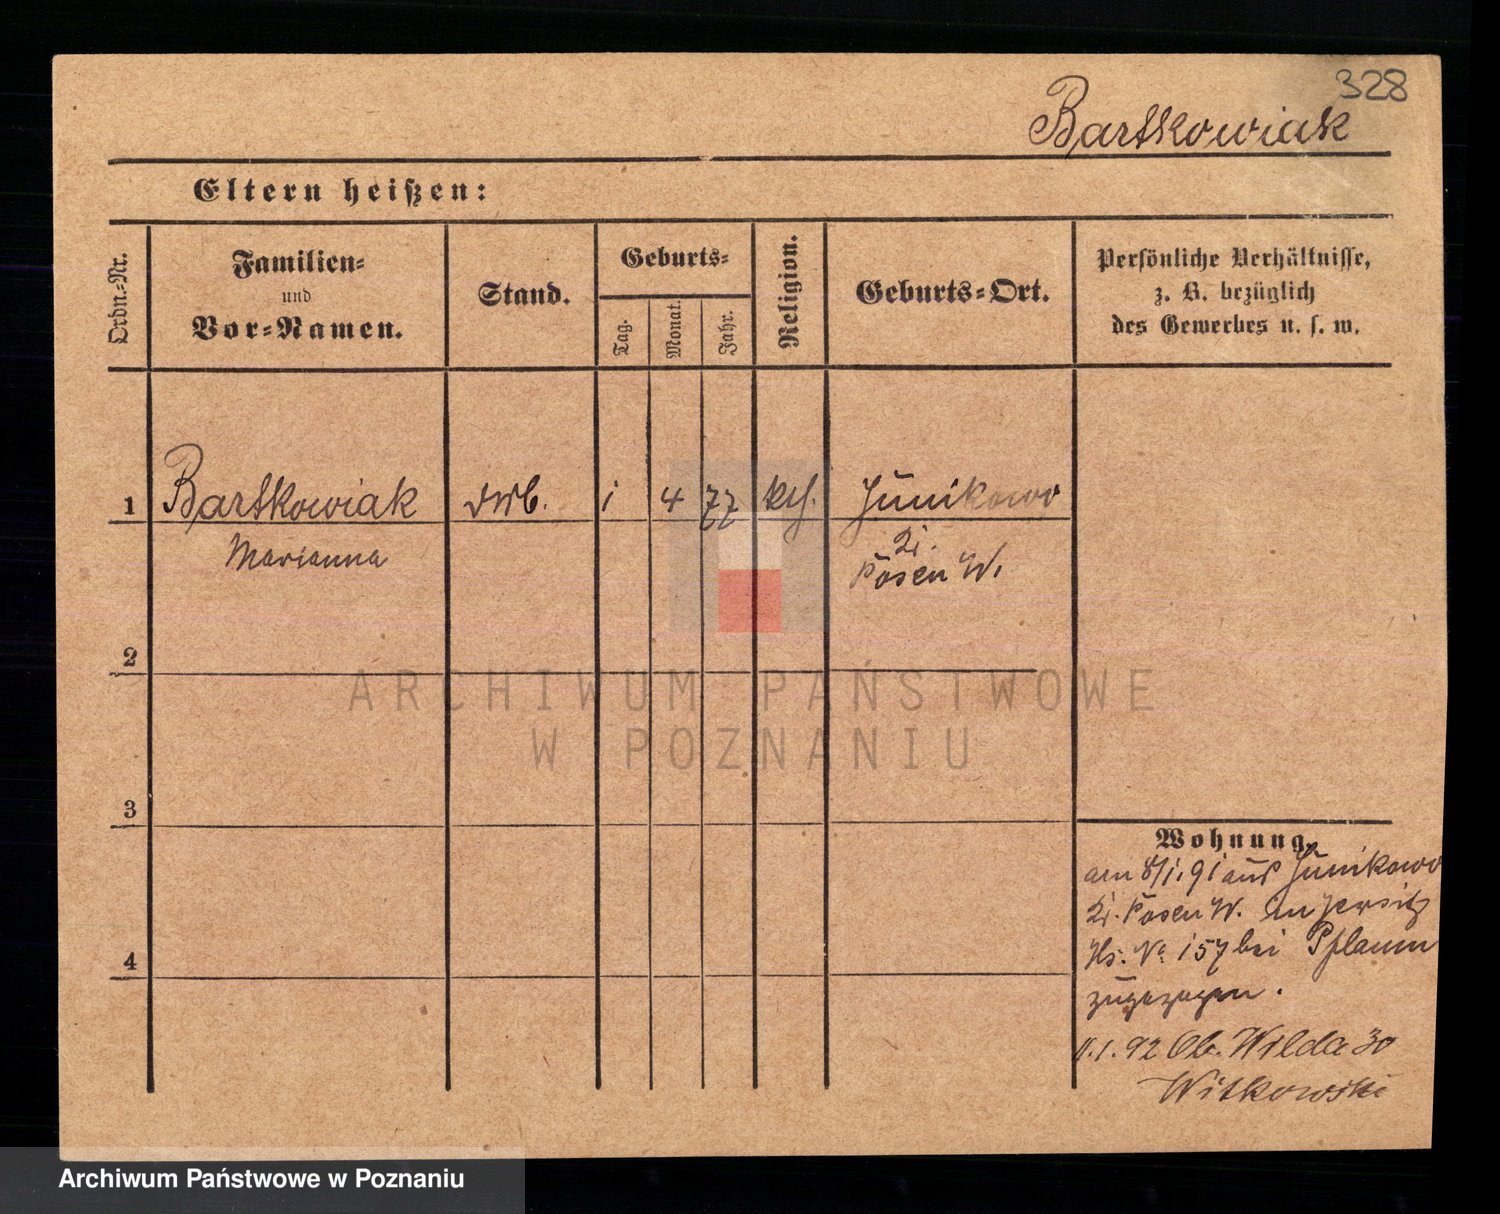 328
Bartkowiak
Eltern heißen:
Ordn.-Nr.
Familien-
und
Vor-Namen.
Stand.
Geburts-
Tag.
Monat.
Jahr.
Religion.
Geburts-Ort.
Persönliche Verhältnisse,
z. B. bezüglich
des Gewerbes u. s. w.
1 Bartkowiak 1 4 77 kth. Junikowo
Marianna
Kr.
Posen W.
2
3
4
Wohnung.
am 8/1.91 aus Junikowo
Kr. Posen W. in Jersitz
Hs. No 157 bei Pflaum
zugezogen.
11.1.92 Ob. Wilda 30
Witkowski
ARCHIWUM PAŃSTWOWE
W POZNANIU
Archiwum Państwowe w Poznaniu